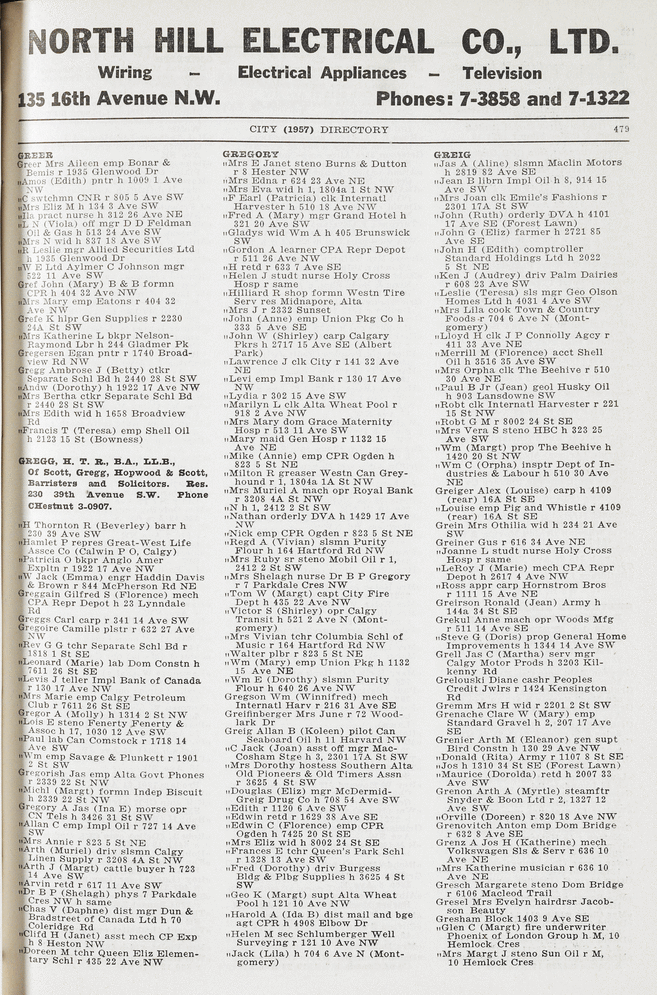 NORTH HILL ELECTRICAL CO., LTD.
Wiring – Electrical Appliances – Television
135 16th Avenue N.W. Phones: 7-3858 and 7-1322
CITY (1957) DIRECTORY 479
GREER
Greer Mrs Aileen emp Bonar &
Bemis r 1935 Glenwood Dr
„Amos (Edith) pntr h 1009 1 Ave
NW
„C swtchmn CNR r 805 5 Ave SW
„Mrs Eliz M h 134 3 Ave SW
„Ila pract nurse h 312 26 Ave NE
„L N (Viola) off mgr D D Feldman
Oil & Gas h 513 24 Ave SW
„Mrs N wid h 837 18 Ave SW
„R Leslie mgr Allied Securities Ltd
h 1935 Glenwood Dr
„W E Ltd Aylmer C Johnson mgr
522 11 Ave SW
Gref John (Mary) B & B formn
CPR h 404 32 Ave NW
„Mrs Mary emp Eatons r 404 32
Ave NW
Grefe K hlpr Gen Supplies r 2230
24A St SW
„Mrs Katherine L bkpr Nelson-
Raymond Lbr h 244 Gladmer Pk
Gregersen Egan pntr r 1740 Broad-
view Rd NW
Gregg Ambrose J (Betty) ctkr
Separate Schl Bd h 2440 28 St SW
„Andw (Dorothy) h 1922 17 Ave NW
„Mrs Bertha ctkr Separate Schl Bd
r 2440 28 St SW
„Mrs Edith wid h 1658 Broadview
Rd
„Francis T (Teresa) emp Shell Oil
h 2123 15 St (Bowness)
GREGG, H. T. R., B.A., LL.B.,
Of Scott, Gregg, Hopwood & Scott,
Barristers and Solicitors. Res.
230 39th Avenue S.W. Phone
CHestnut 3-0907.
„H Thornton R (Beverley) barr h
230 39 Ave SW
„Hamlet P repres Great-West Life
Assce Co (Calwin P O, Calgy)
„Patricia O bkpr Anglo Amer
Expltn r 1922 17 Ave NW
„W Jack (Emma) engr Haddin Davis
& Brown r 844 McPherson Rd NE
Greggain Gilfred S (Florence) mech
CPA Repr Depot h 23 Lynndale
Rd
Greggs Carl carp r 341 14 Ave SW
Gregoire Camille plstr r 632 27 Ave
NW
„Rev G G tchr Separate Schl Bd r
1818 1 St SE
„Leonard (Marie) lab Dom Constn h
7611 26 St SE
„Levis J teller Impl Bank of Canada
r 130 17 Ave NW
„Mrs Marie emp Calgy Petroleum
Club r 7611 26 St SE
Gregor A (Molly) h 1314 2 St NW
„Lois E steno Fenerty Fenerty &
Assoc h 17, 1030 12 Ave SW
„Paul lab Can Comstock r 1718 14
Ave SW
„Wm emp Savage & Plunkett r 1901
2 St SW
Gregorish Jas emp Alta Govt Phones
r 2339 22 St NW
„Michl (Margt) formn Indep Biscuit
h 2339 22 St NW
Gregory A Jas (Ina E) morse opr
CN Tels h 3426 31 St SW
„Allan C emp Impl Oil r 727 14 Ave
SW
„Mrs Annie r 823 5 St NE
„Arth (Muriel) driv slsmn Calgy
Linen Supply r 3208 4A St NW
„Arth J (Margt) cattle buyer h 723
14 Ave SW
„Arvin retd r 617 11 Ave SW
„Dr B P (Shelagh) phys 7 Parkdale
Cres NW h same
„Chas V (Daphne) dist mgr Dun &
Bradstreet of Canada Ltd h 70
Coleridge Rd
„Clifd H (Janet) asst mech CP Exp
h 8 Heston NW
„Doreen M tchr Queen Eliz Elemen-
tary Schl r 435 22 Ave NW
GREGORY
„Mrs E Janet steno Burns & Dutton
r 8 Hester NW
„Mrs Edna r 624 23 Ave NE
„Mrs Eva wid h 1, 1804a 1 St NW
„F Earl (Patricia) clk Internatl
Harvester h 510 18 Ave NW
„Fred A (Mary) mgr Grand Hotel h
321 20 Ave SW
„Gladys wid Wm A h 405 Brunswick
SW
„Gordon A learner CPA Repr Depot
r 511 26 Ave NW
„H retd r 633 7 Ave SE
„Helen J studt nurse Holy Cross
Hosp r same
„Hilliard R shop formn Westn Tire
Serv res Midnapore, Alta
„Mrs J r 2332 Sunset
„John (Anne) emp Union Pkg Co h
333 5 Ave SE
„John W (Shirley) carp Calgary
Pkrs h 2717 15 Ave SE (Albert
Park)
„Lawrence J clk City r 141 32 Ave
NE
„Levi emp Impl Bank r 130 17 Ave
NW
„Lydia r 302 15 Ave SW
„Marilyn L clk Alta Wheat Pool r
918 2 Ave NW
„Mrs Mary dom Grace Maternity
Hosp r 513 11 Ave SW
„Mary maid Gen Hosp r 1132 15
Ave NE
„Mike (Annie) emp CPR Ogden h
823 5 St NE
„Milton R greaser Westn Can Grey-
hound r 1, 1804a 1A St NW
„Mrs Muriel A mach opr Royal Bank
r 3208 4A St NW
„N h 1, 2412 2 St SW
„Nathan orderly DVA h 1429 17 Ave
NW
„Nick emp CPR Ogden r 823 5 St NE
„Regd A (Vivian) slsmn Purity
Flour h 164 Hartford Rd NW
„Mrs Ruby sr steno Mobil Oil r 1,
2412 2 St SW
„Mrs Shelagh nurse Dr B P Gregory
r 7 Parkdale Cres NW
„Tom W (Margt) capt City Fire
Dept h 435 22 Ave NW
„Victor S (Shirley) opr Calgy
Transit h 521 2 Ave N (Mont-
gomery)
„Mrs Vivian tchr Columbia Schl of
Music r 164 Hartford Rd NW
„Walter plbr r 823 5 St NE
„Wm (Mary) emp Union Pkg h 1132
15 Ave NE
„Wm E (Dorothy) slsmn Purity
Flour h 640 26 Ave NW
Gregson Wm (Winnifred) mech
Internatl Harv r 216 31 Ave SE
Greifinberger Mrs June r 72 Wood-
lark Dr
Greig Allan B (Koleen) pilot Can
Seaboard Oil h 11 Harvard NW
„C Jack (Joan) asst off mgr Mac-
Cosham Stge h 3, 2301 17A St SW
„Mrs Dorothy hostess Southern Alta
Old Pioneers & Old Timers Assn
r 3625 4 St SW
„Douglas (Eliz) mgr McDermid-
Greig Drug Co h 708 54 Ave SW
„Edith r 1120 6 Ave SW
„Edwin retd r 1629 38 Ave SE
„Edwin C (Florence) emp CPR
Ogden h 7425 20 St SE
„Mrs Eliz wid h 8002 24 St SE
„Frances E tchr Queen's Park Schl
r 1328 13 Ave SW
„Fred (Dorothy) driv Burgess
Bldg & Plbg Supplies h 3625 4 St
SW
„Geo K (Margt) supt Alta Wheat
Pool h 121 10 Ave NW
„Harold A (Ida B) dist mail and bge
agt CPR h 4908 Elbow Dr
„Helen M sec Schlumberger Well
Surveying r 121 10 Ave NW
„Jack (Lila) h 704 6 Ave N (Mont-
gomery)
GREIG
„Jas A (Aline) slsmn Maclin Motors
h 2819 82 Ave SE
„Jean B librn Impl Oil h 8, 914 15
Ave SW
„Mrs Joan clk Emile's Fashions r
2301 17A St SW
„John (Ruth) orderly DVA h 4101
17 Ave SE (Forest Lawn)
„John G (Eliz) farmer h 2721 85
Ave SE
„John H (Edith) comptroller
Standard Holdings Ltd h 2022
5 St NE
„Ken J (Audrey) driv Palm Dairies
r 608 23 Ave SW
„Leslie (Teresa) sls mgr Geo Olson
Homes Ltd h 4031 4 Ave SW
„Mrs Lila cook Town & Country
Foods r 704 6 Ave N (Mont-
gomery)
„Lloyd H clk J P Connolly Agcy r
411 33 Ave NE
„Merrill M (Florence) acct Shell
Oil h 3516 35 Ave SW
„Mrs Orpha clk The Beehive r 510
30 Ave NE
„Paul B Jr (Jean) geol Husky Oil
h 903 Lansdowne SW
„Robt clk Internatl Harvester r 221
15 St NW
„Robt G M r 8002 24 St SE
„Mrs Vera S steno HBC h 323 25
Ave SW
„Wm (Margt) prop The Beehive h
1420 20 St NW
„Wm C (Orpha) insptr Dept of In-
dustries & Labour h 510 30 Ave
NE
Greiger Alex (Louise) carp h 4109
(rear) 16A St SE
„Louise emp Pig and Whistle r 4109
(rear) 16A St SE
Grein Mrs Othilia wid h 234 21 Ave
SW
Greiner Gus r 616 34 Ave NE
„Joanne L studt nurse Holy Cross
Hosp r same
„LeRoy J (Marie) mech CPA Repr
Depot h 2617 4 Ave NW
„Ross appr carp Hornstrom Bros
r 1111 15 Ave NE
Greirson Ronald (Jean) Army h
144a 34 St SE
Grekul Anne mach opr Woods Mfg
r 511 14 Ave SE
„Steve G (Doris) prop General Home
Improvements h 1344 14 Ave SW
Grell Jas C (Martha) serv mgr
Calgy Motor Prods h 3203 Kil-
kenny Rd
Grelouski Diane cashr Peoples
Credit Jwlrs r 1424 Kensington
Rd
Gremm Mrs H wid r 2201 2 St SW
Grenache Clare W (Mary) emp
Standard Gravel h 2, 207 17 Ave
SE
Grenier Arth M (Eleanor) gen supt
Bird Constn h 130 29 Ave NW
„Donald (Rita) Army r 1107 8 St SE
„Jos h 1310 34 St SE (Forest Lawn)
„Maurice (Dorolda) retd h 2007 33
Ave SW
Grenon Arth A (Myrtle) steamftr
Snyder & Boon Ltd r 2, 1327 12
Ave SW
„Orville (Doreen) r 820 18 Ave NW
Grenovitch Anton emp Dom Bridge
r 632 8 Ave SE
Grenz A Jos H (Katherine) mech
Volkswagen Sls & Serv r 636 10
Ave NE
„Mrs Katherine musician r 636 10
Ave NE
Gresch Margarete steno Dom Bridge
r 6106 Macleod Trail
Gresel Mrs Evelyn hairdrsr Jacob-
son Beauty
Gresham Block 1403 9 Ave SE
„Glen C (Margt) fire underwriter
Phoenix of London Group h M, 10
Hemlock Cres
„Mrs Margt J steno Sun Oil r M,
10 Hemlock Cres